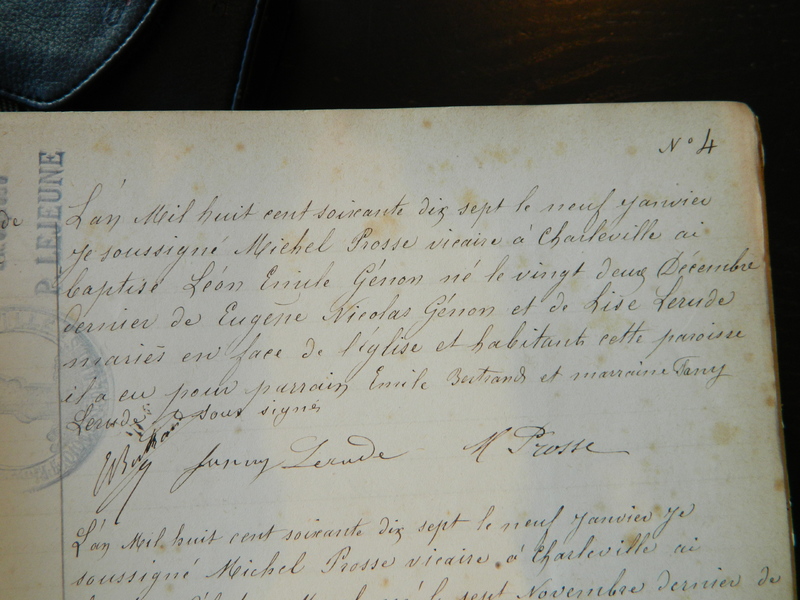 N° 4
P. LEJEUNE
de
L'an Mil huit cent soixante dix sept le neuf janvier
je soussigné Michel Prosse vicaire à Charleville ai
baptisé Léon Emile Génon né le vingt deux Décembre
dernier de Eugène Nicolas Génon et de Lise Lerude
mariés en face de l'église et habitants cette paroisse
il a eu pour parrain Emile Bertrand et marraine Fany
Lerude sous signés
Fanny Lerude M Prosse
L'an Mil huit cent soixante dix sept le neuf janvier je
soussigné Michel Prosse vicaire à Charleville ai
le sept Novembre dernier de